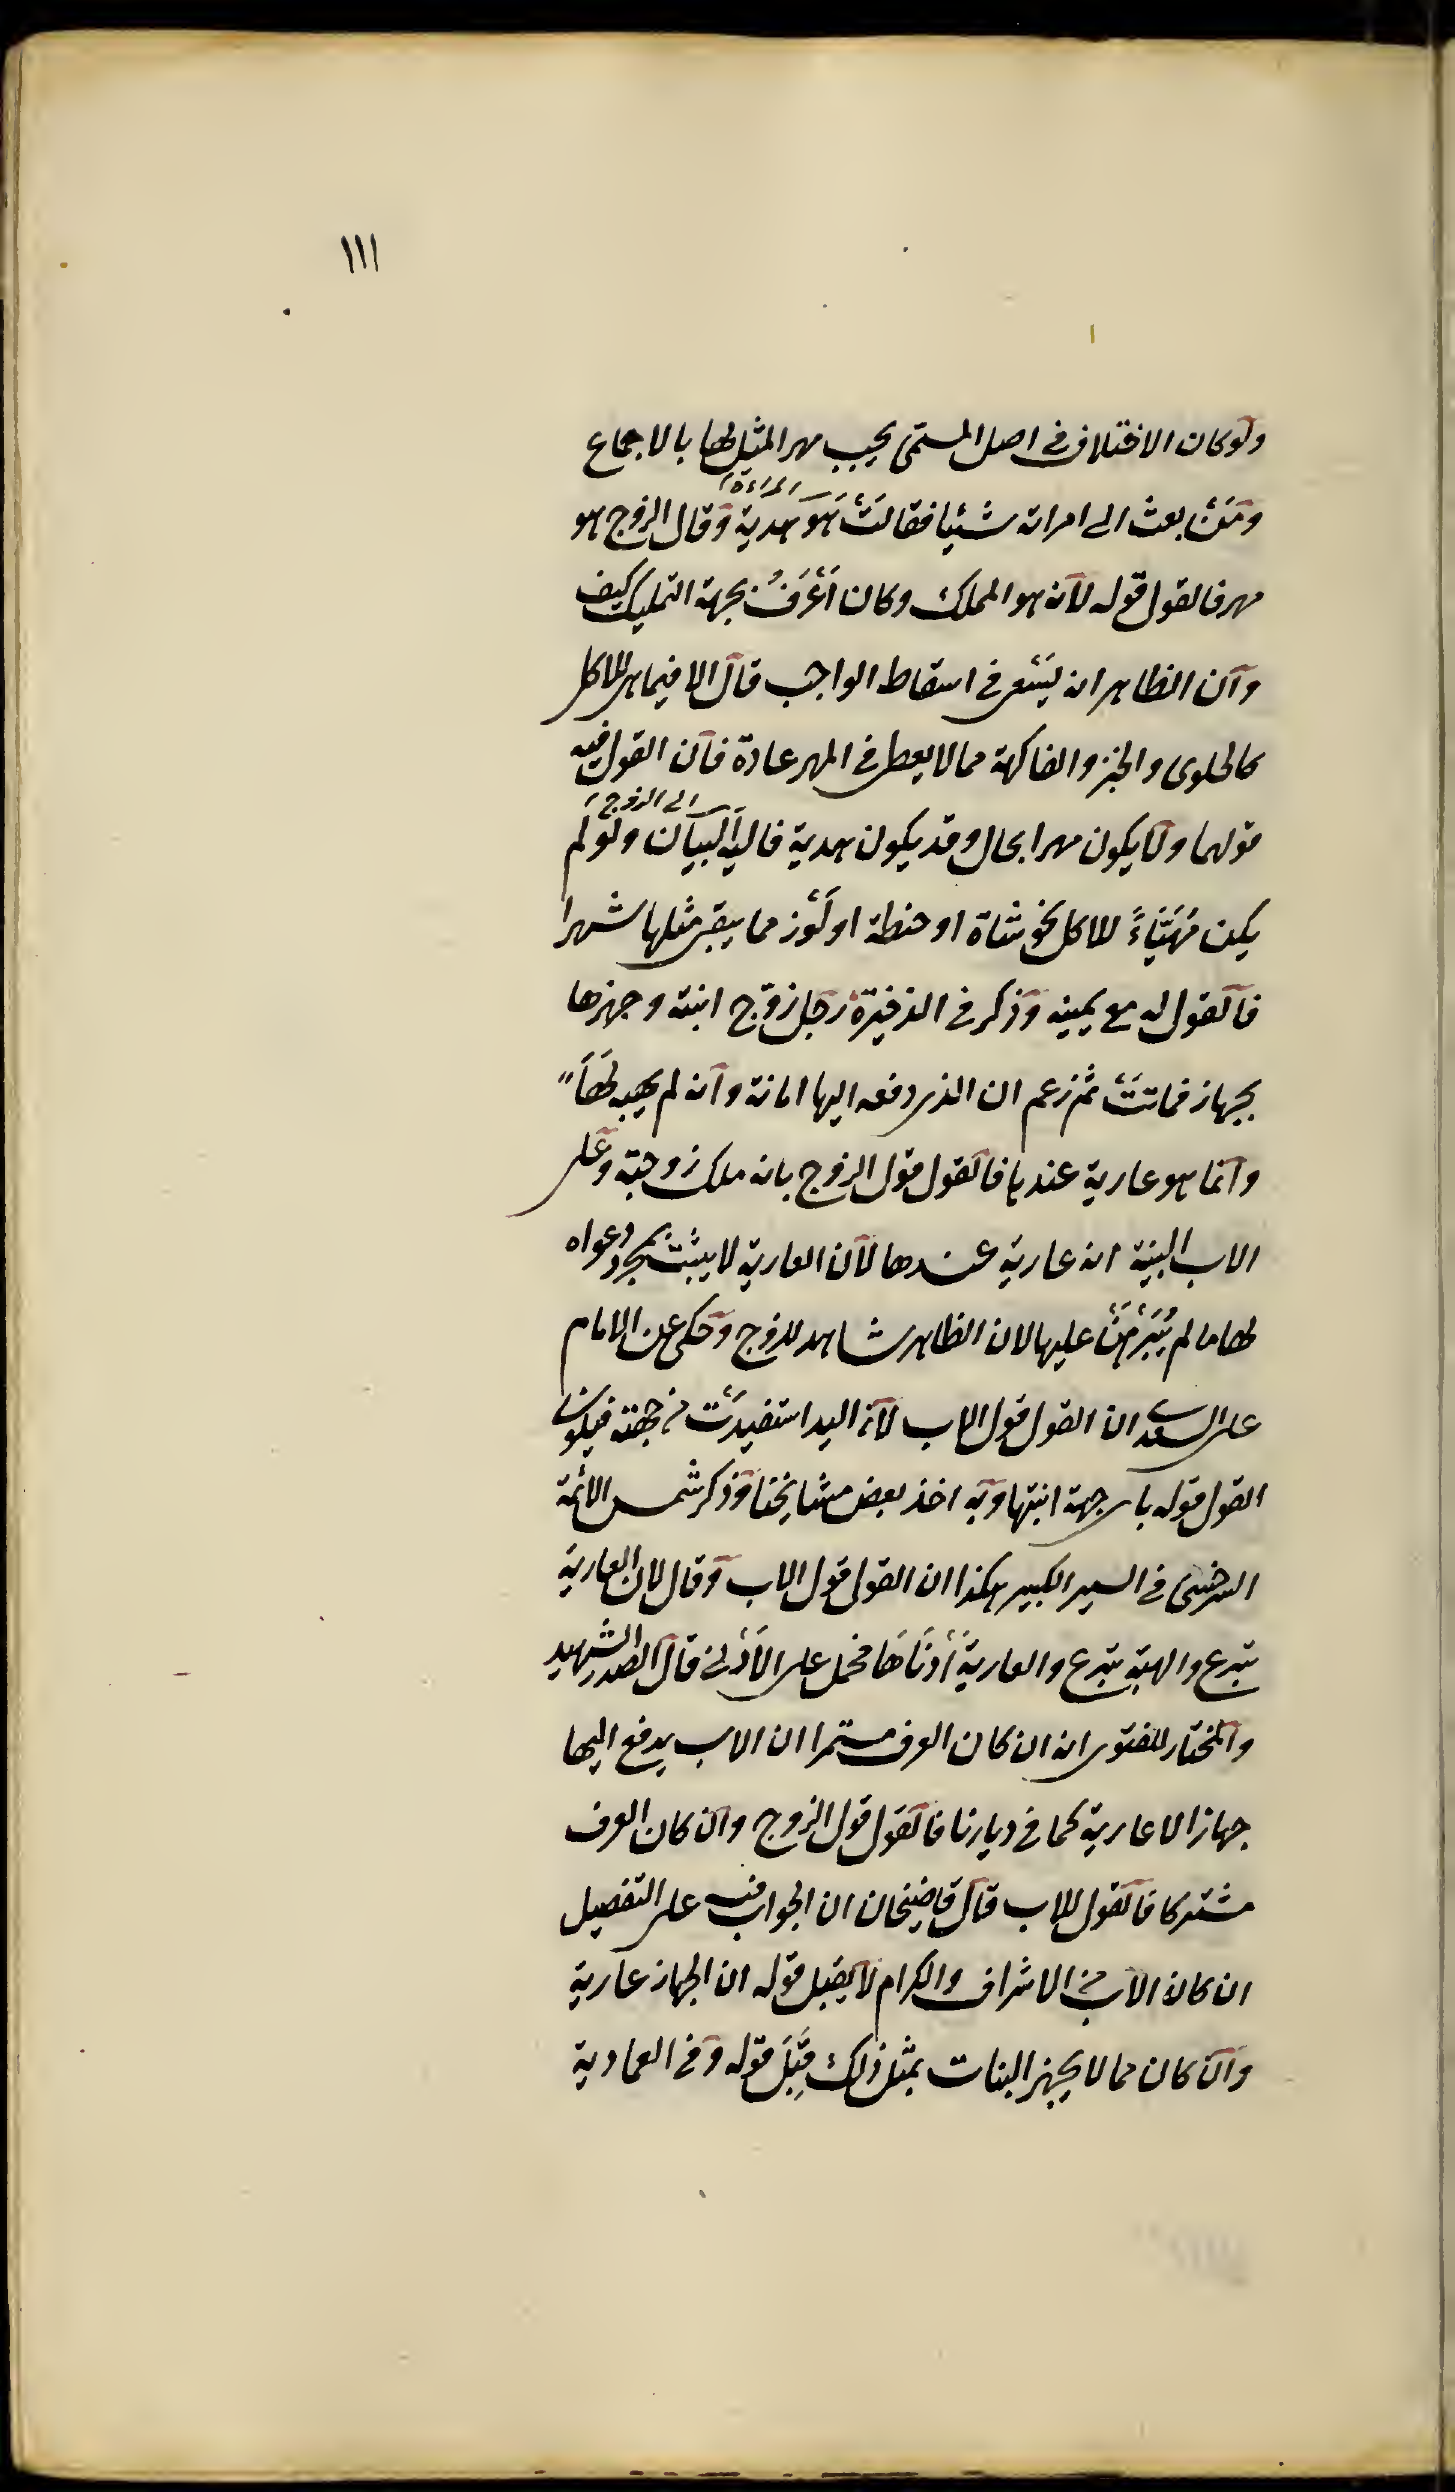 ١١١
ولو كان الاختلاف فى اصل المسمّى يجب مهر المثل لها بالاجماع
ومَنْ بعث الى امراته شيئا فقالَتْ هُوَ هَديّة وقال الزوج هو
المراءة
مهر فالقول قوله لانه هو المملك وكان اَعْرَفُ بجهة التمليك كيف
وان الظاهر انه يَسْعى فى اسقاط الواجب قال الا فيما هى للاكل
كالحلوى والخبز والفاكهة مما لا يعطى فى المهر عادة فان القول فيه
قولها ولا يكون مهرا بحال وقد يكون هدية فاليه البيان ولو لم
الى الزوج
يكن مُهَيَّاءً للاكل نحو شاة او حنطة او لَوْز مما يبقى مثلها شهرا
فالقول له مع يمينه وذكر فى الذخيرة رجل زوّج ابنته وجهزها
بجهاز فماتَتْ ثم زعم ان الذى دفعه اليها امانة وانه لم يهبه لَهَا
وانما هو عارية عندها فالقول قول الزوج بانه ملك زوجته وعلى
الاب البينة انه عارية عندها لان العارية لا يثبت بمجرد دعواه
لها ما لم يُبَرْهَنْ عليها لان الظاهر شاهد للزوج وحكى عن الامام
على السعدى ان القول قول الاب لان اليد استفيدَتْ من جهته فيكون
القول قوله باى جهة اثبتها وبه اخذ بعض مشايخنا وذكر شمس الائمة
السرخسى فى السير الكبير هكذا ان القول قول الاب وقال لان العارية
تبرع والهبة تبرع والعارية اَدْنَاهَا فحمل على الاَدْنى قال الصدر الشهيد
والمختار للفتوى انه ان كان العرف مستمرا ان الاب يدفع اليها
جهازا لا عارية كما فى ديارنا فالقول قول الزوج وان كان العرف
مشتركا فالقول للاب قال قاضيخان ان الجواب فيه على التفصيل
ان كان الاب من الاشراف والكرام لا يقبل قوله ان الجهاز عارية
وان كان مما لا يجهز البنات بمثل ذلك قُبِلَ قوله وفى العمادية